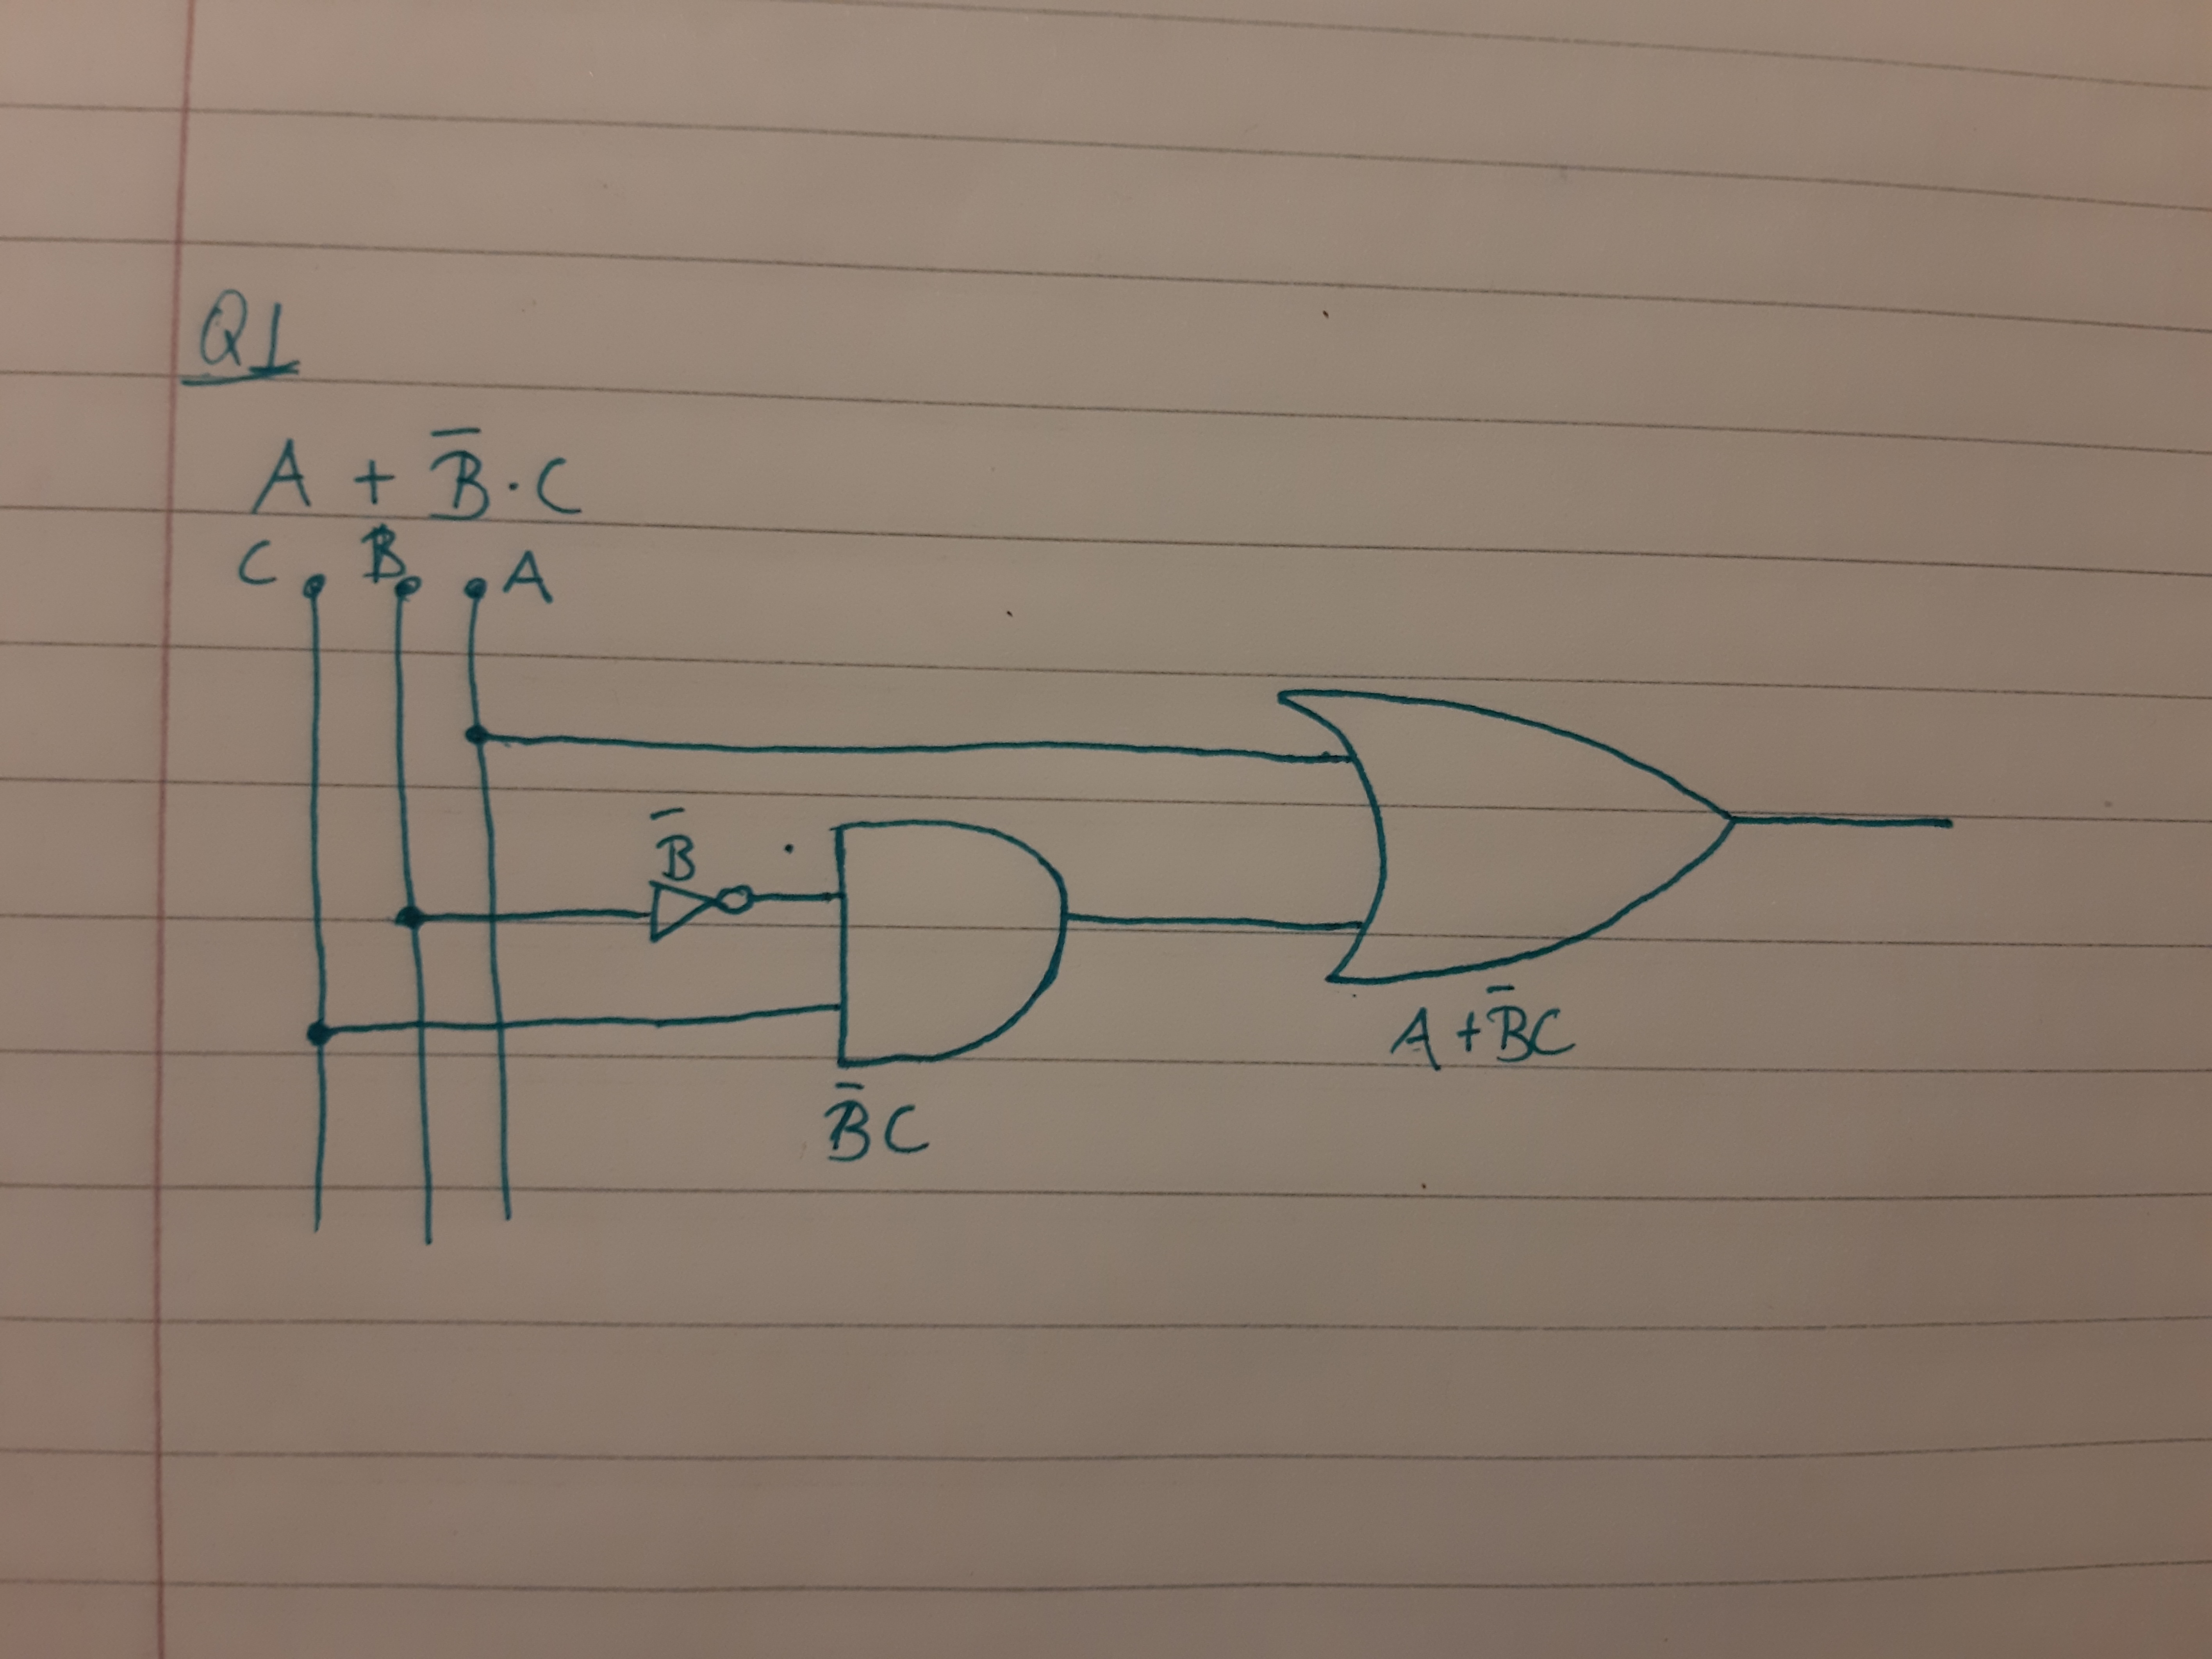 Q1
A + B̅·C
C B A
B̅
A + B̅C
B̅C